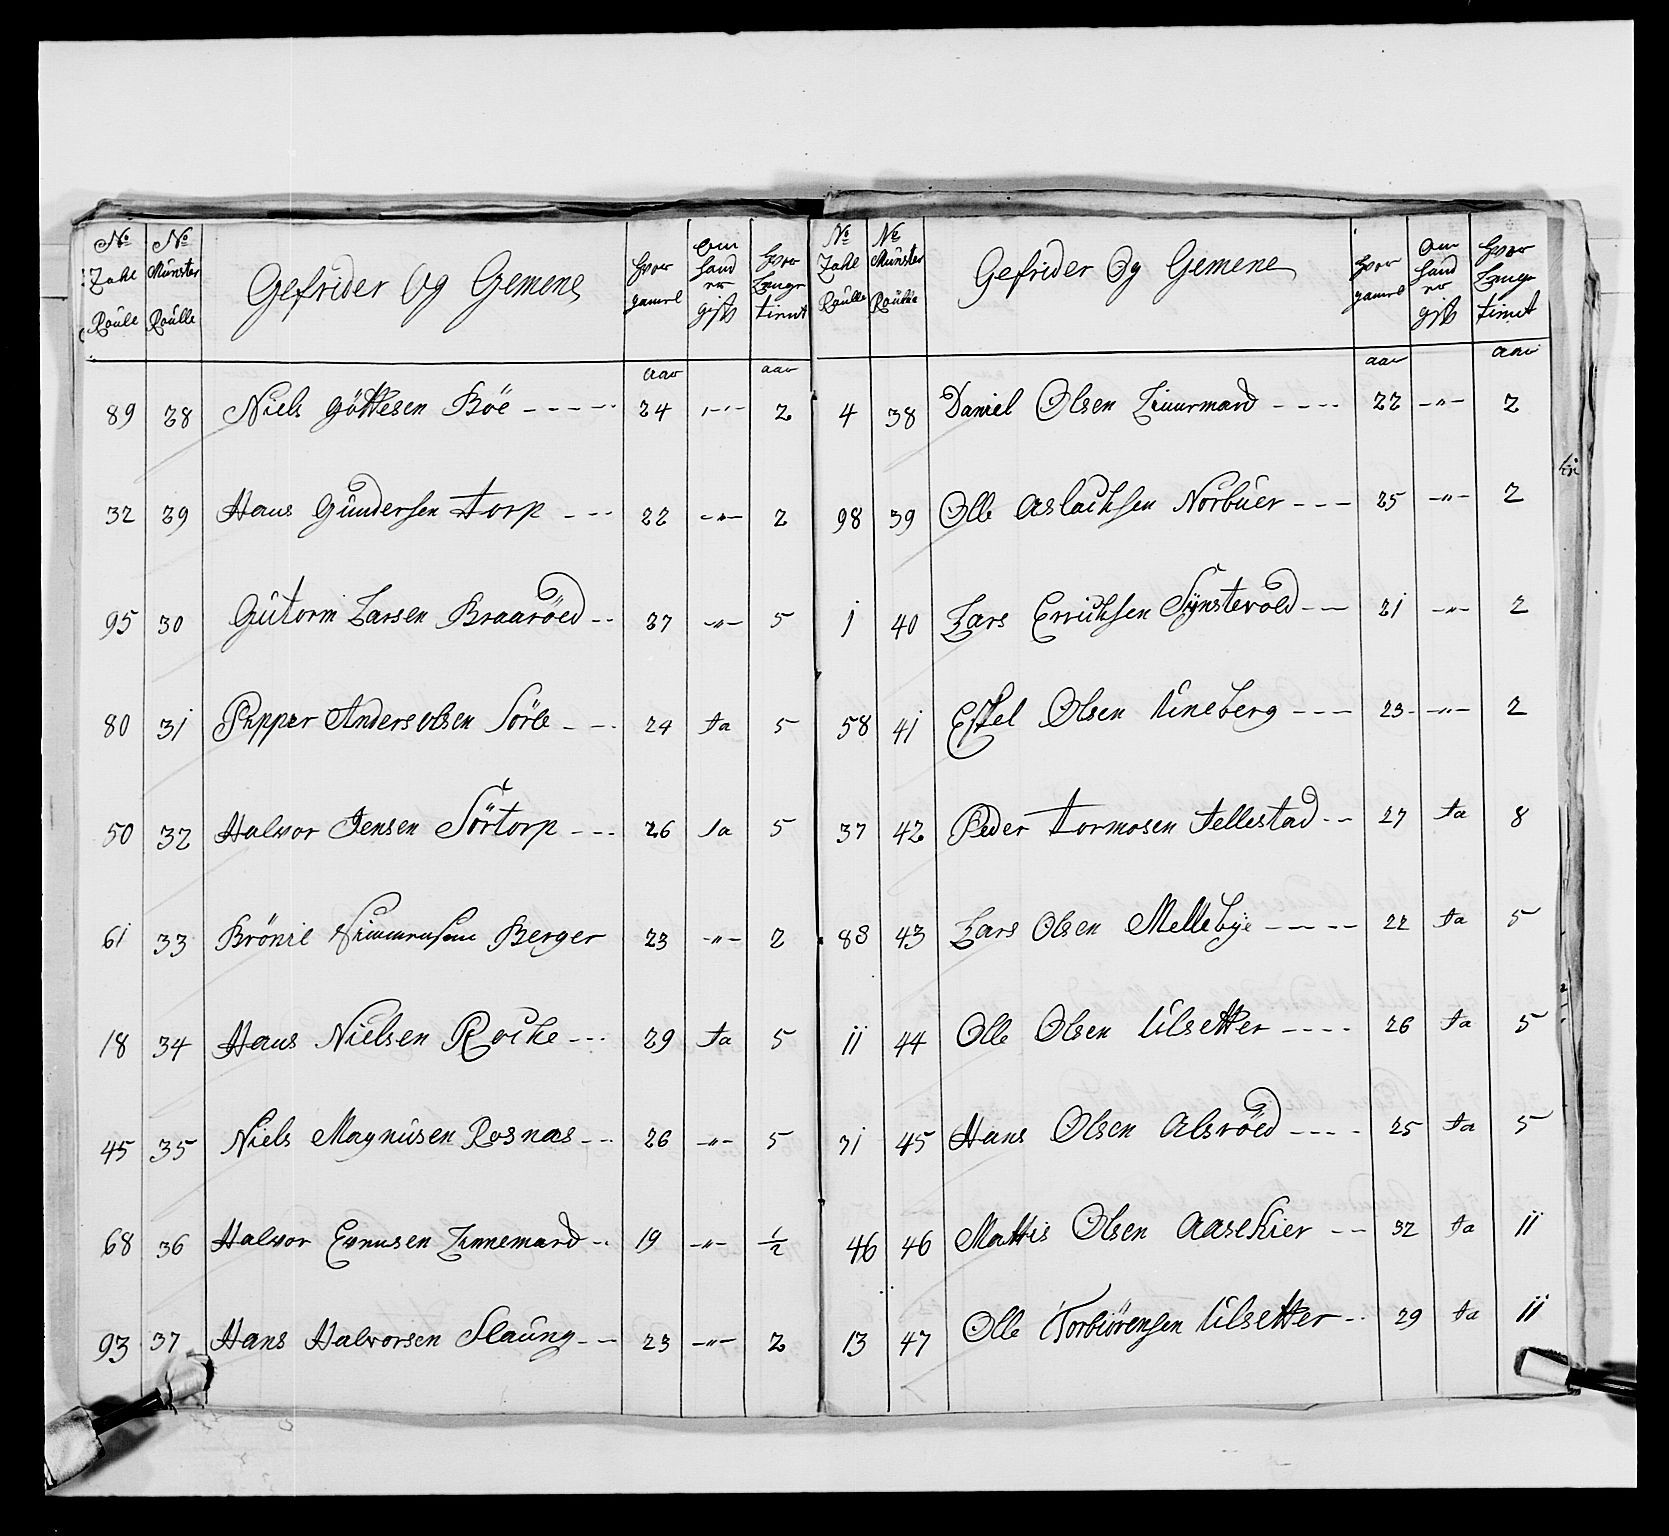 No Zahl Roule | No Munster Roulle | Gefrider Og Gemene | Hvor gamel | Om hand er gift | Hvor Lenge tient
aar | aar
89 | 28 | Niels Göttesen Böe | 24 | -"- | 2
32 | 29 | Hans Gundersen Torp | 22 | -"- | 2
95 | 30 | Gutorm Larsen Braaröed | 27 | -"- | 5
80 | 31 | Anders olsen Sörle | 24 | Ja | 5
50 | 32 | Halvor Jensen Sörtorp | 26 | Ja | 5
61 | 33 | Berger | 23 | -"- | 2
18 | 34 | Hans Nielsen Rocke | 29 | Ja | 5
45 | 35 | Niels Magnusen Rosnæs | 26 | -"- | 5
68 | 36 | Halvor | 19 | -"- | 1/2
93 | 37 | Hans Halvorsen Slaung | 23 | -"- | 2
No Zahl Roulle | No Munster Roulle | Gefrider Og Gemene | Hvor gamel | Om hand er gift | Hvor Lenge tient
aar | aar
4 | 38 | Daniel Olsen | 22 | -"- | 2
98 | 39 | Olle Aslachsen Norbuer | 25 | -"- | 2
1 | 40 | Lars Errichsen Synstevold | 21 | -"- | 2
58 | 41 | Eskel Olsen Kineberg | 23 | -"- | 2
37 | 42 | Peder Tormosen Tellestad | 27 | Ja | 8
88 | 43 | Lars Olsen Mellebye | 22 | Ja | 5
11 | 44 | Olle Olsen Ulsetter | 26 | Ja | 5
31 | 45 | Hans Olsen Alsröed | 25 | Ja | 5
46 | 46 | Mattis Olsen Aasekier | 32 | Ja | 11
13 | 47 | Olle Torbiörensen Ulsetter | 29 | Ja | 11